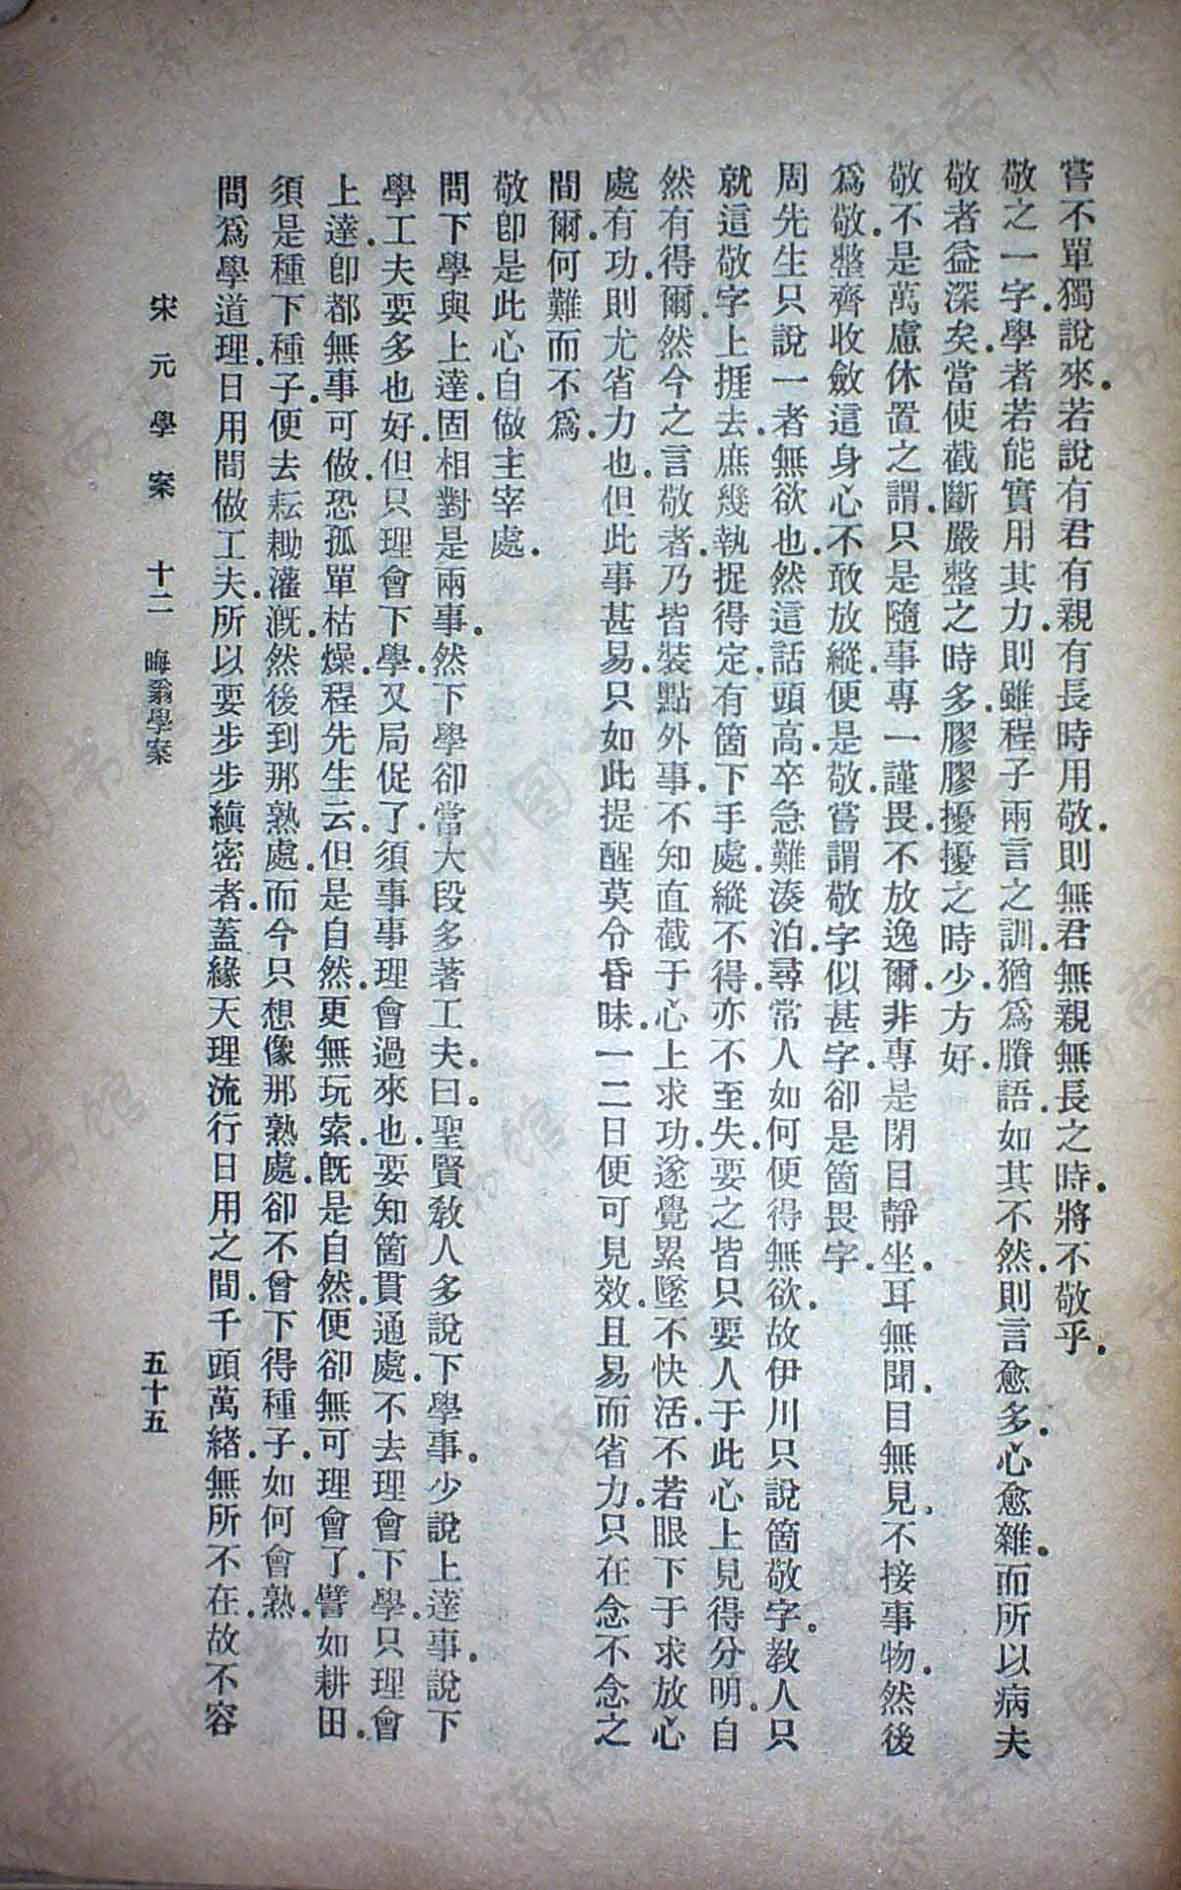 嘗不單獨說來.若說有君有親有長時用敬.則無君無親無長之時.將不敬乎.
敬之一字.學者若能實用其力.則雖程子兩言之訓.猶爲賸語.如其不然.則言愈多.心愈雜.而所以病夫
敬者益深矣.當使截斷嚴整之時多.膠膠擾擾之時少.方好.
敬不是萬慮休置之謂.只是隨事專一謹畏.不放逸爾.非專是閉目靜坐.耳無聞.目無見.不接事物.然後
爲敬.整齊收斂這身心.不敢放縱.便是敬.嘗謂敬字似甚字.卻是箇畏字.
周先生只說一者無欲也.然這話頭高.卒急難湊泊.尋常人如何便得無欲.故伊川只說箇敬字.教人只
就這敬字上捱去.庶幾執捉得定.有箇下手處.縱不得.亦不至失.要之皆只要人于此心上見得分明.自
然有得爾.然今之言敬者.乃皆裝點外事.不知直截于心上求功.遂覺累墜不快活.不若眼下于求放心
處有功.則尤省力也.但此事甚易.只如此提醒.莫令昏昧.一二日便可見效.且易而省力.只在念不念之
間爾.何難而不爲.
敬卽是此心自做主宰處.
問下學與上達.固相對是兩事.然下學卻當大段多著工夫.曰.聖賢敎人多說下學事.少說上達事.說下
學工夫要多也好.但只理會下學.又局促了.須事事理會過來也.要知箇貫通處.不去理會下學.只理會
上達.卽都無事可做.恐孤單枯燥.程先生云.但是自然.更無玩索.旣是自然.便卻無可理會了.譬如耕田.
須是種下種子.便去耘耡灌漑.然後到那熟處.而今只想像那熟處.卻不曾下得種子.如何會熟.
問爲學道理.日用間做工夫.所以要步步縝密者.蓋緣天理流行日用之間.千頭萬緒.無所不在.故不容
宋元學案 十二 晦翁學案 五十五